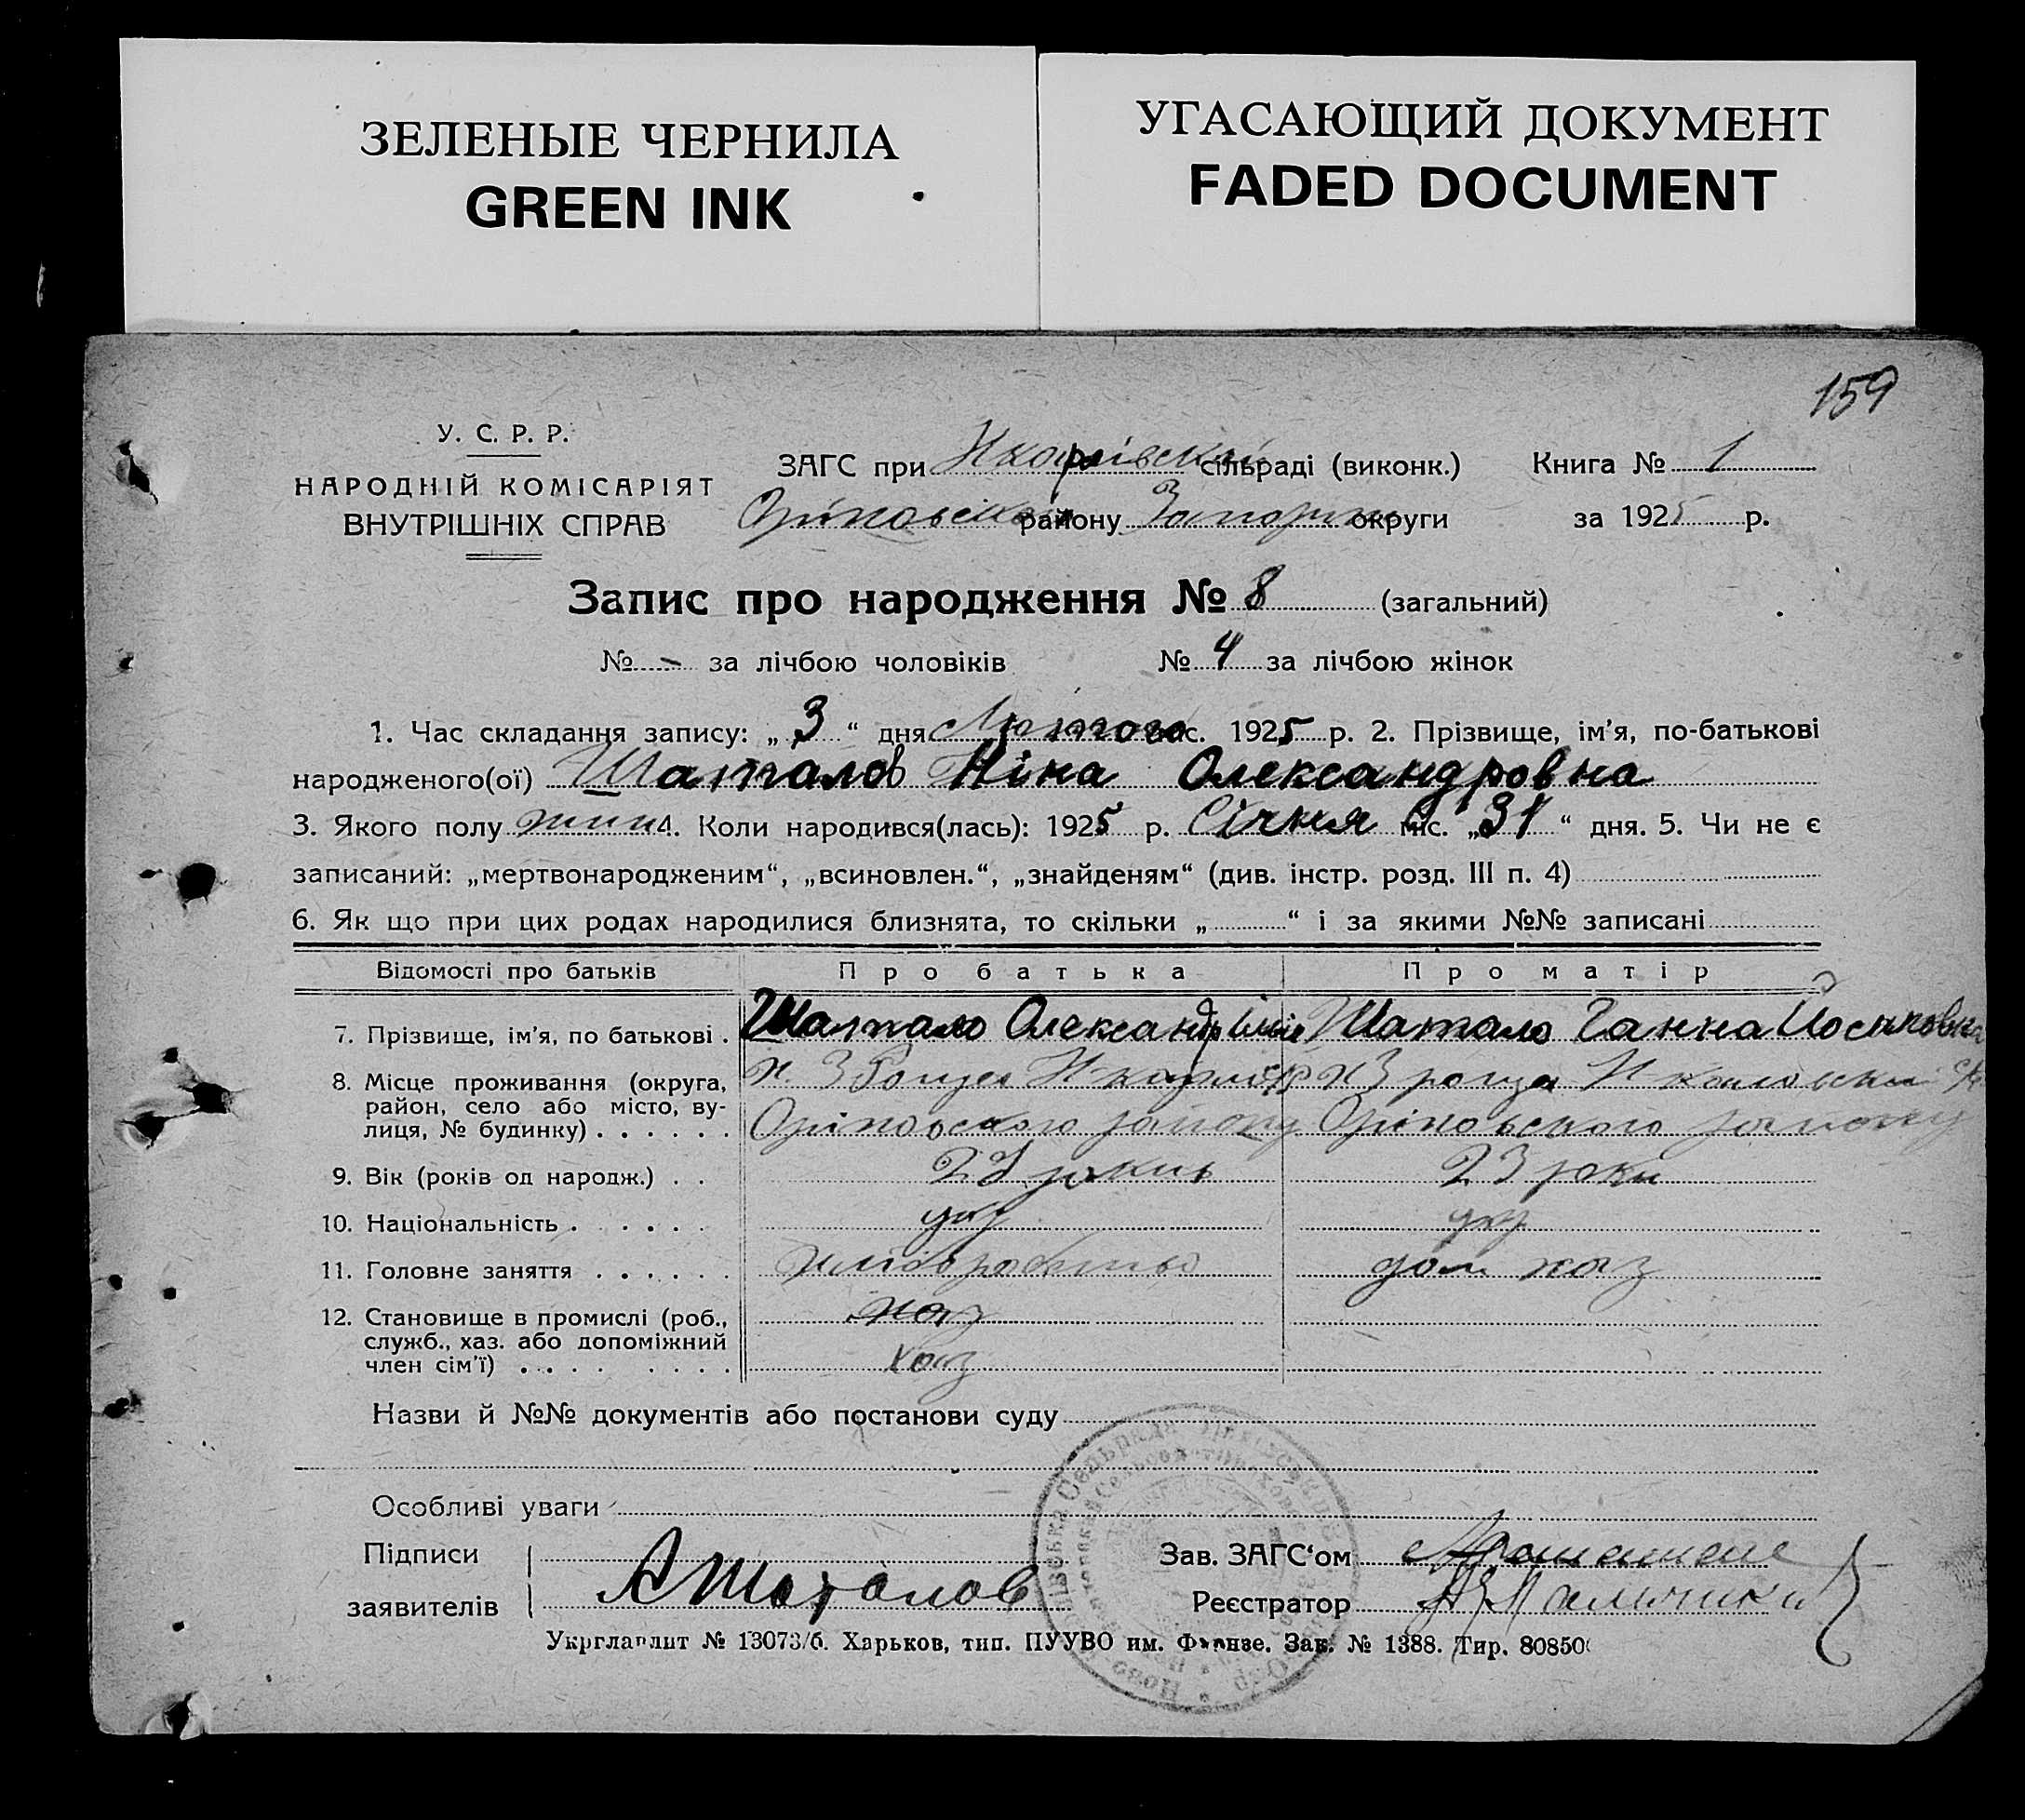 ЗЕЛЕНЫЕ ЧЕРНИЛА
GREEN INK
УГАСАЮЩИЙ ДОКУМЕНТ
FADED DOCUMENT
159
У. С. Р. Р.
НАРОДНІЙ КОМІСАРІЯТ
ВНУТРІШНІХ СПРАВ
ЗАГС при сільраді (виконк.) Книга № 1
району округи за 1925 р.
Запис про народження № 8 (загальний)
№ - за лічбою чоловіків № 4 за лічбою жінок
1. Час складання запису: „ 3 “ дня Лютого міс. 1925 р. 2. Прізвище, ім'я, по-батькові
народженого(ої) Шаталов Ніна Олександровна
3. Якого полу жин 4. Коли народився(лась): 1925 р. Січня міс. „ 31 “ дня. 5. Чи не є
записаний: „мертвонародженим“, „всиновлен.“, „знайденям“ (див. інстр. розд. III п. 4)
6. Як що при цих родах народилися близнята, то скільки „ “ і за якими №№ записані
Відомості про батьків Про батька Про матір
7. Прізвище, ім'я, по батькові . Шатало Олександр Шатало Ганна Йосиповна
8. Місце проживання (округа,
район, село або місто, ву-
лиця, № будинку) . . . . . . Оріховського району Оріховського району
9. Вік (років од народж.) . . років 23 роки
10. Національність . . . . . укр укр
11. Головне заняття . . . . . . хліборобство дом хаз
12. Становище в промислі (роб., хаз
служб., хаз. або допоміжний
член сім'ї) . . . . . . . . хаз
Назви й №№ документів або постанови суду
Особливі уваги
Підписи Зав. ЗАГС'ом
заявителів АШаталов Реєстратор
Укрглавлит № 13073/б. Харьков, тип. ПУУВО им. Фрунзе. Зак. № 1388. Тир. 80850